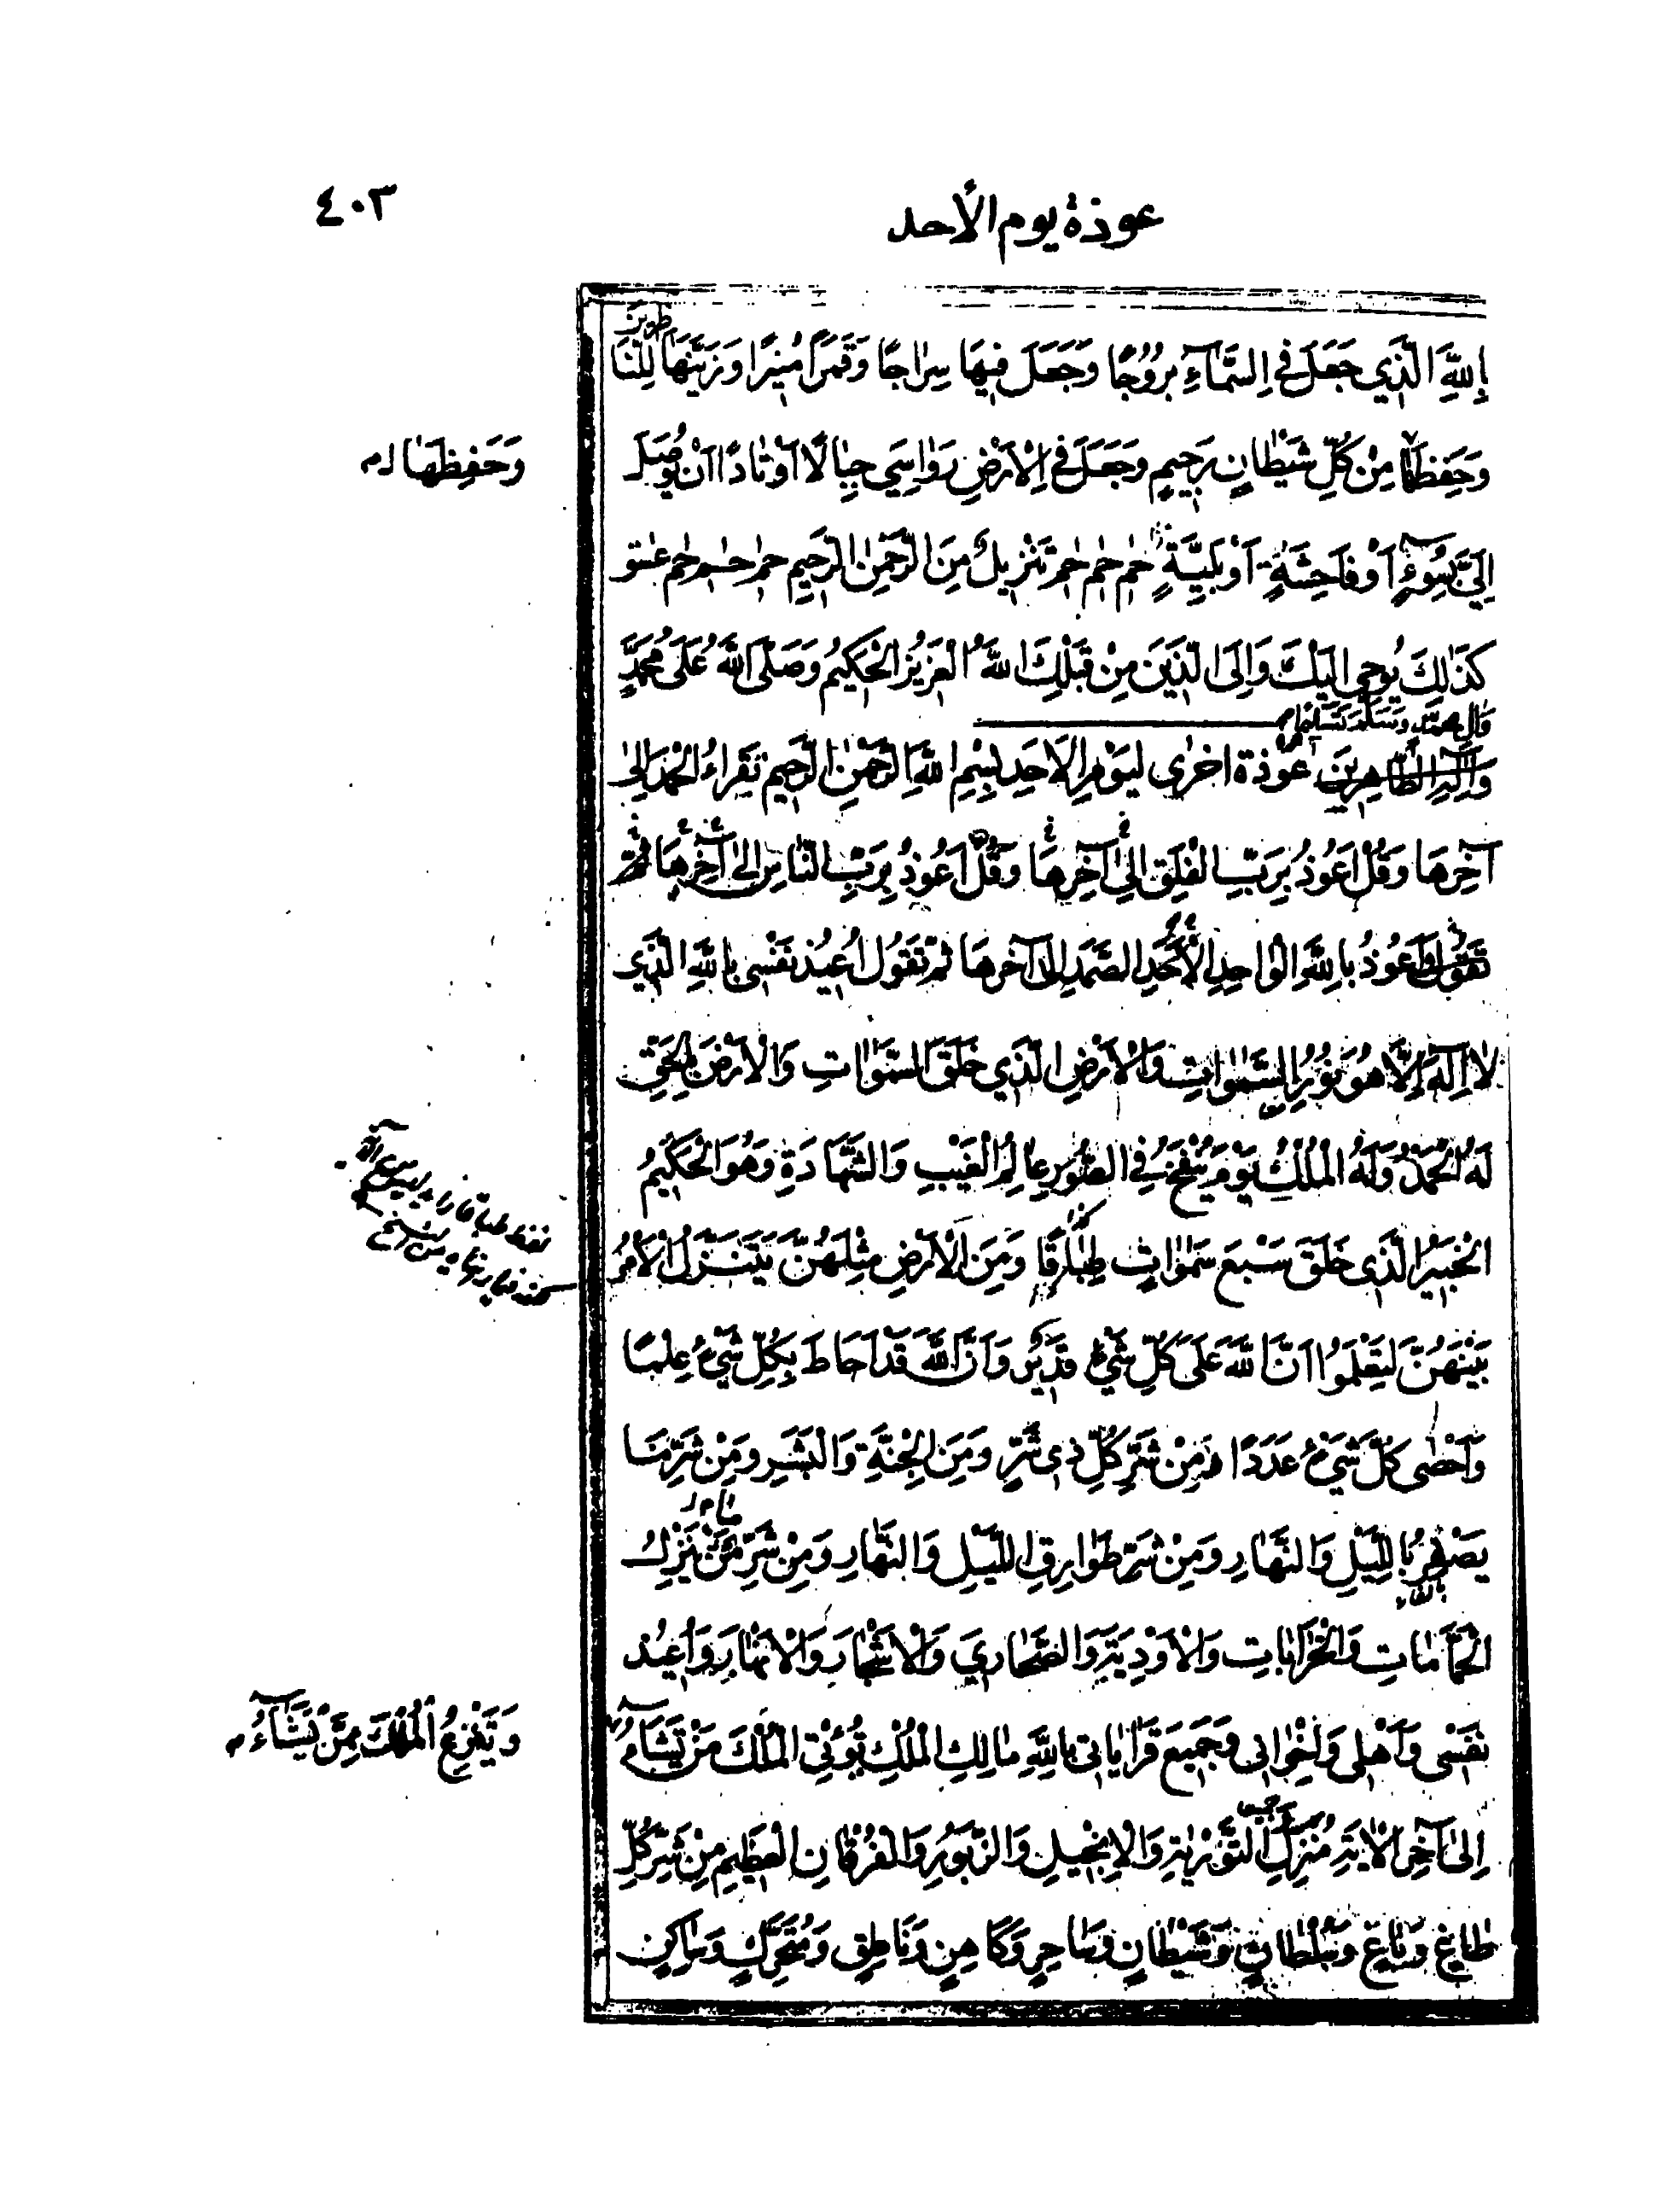 عوذة يوم الأحد
٤٠٣
بِاللّٰهِ الَّذِي جَعَلَ فِي السَّمَآءِ بُرُوجًا وَجَعَلَ فِيهَا سِرَاجًا وَقَمَرًا مُنِيرًا وَزَيَّنَهَا لِلنَّا
وَحَفِظَهَا مِنْ كُلِّ شَيْطَانٍ رَجِيمٍ وَجَعَلَ فِي الْاَرْضِ رَوَاسِيَ جِبَالًا اَوْتَادًا اَنْ يُوصَلَ
وَحَفِظَهَا
اِلَيَّ بِسُوءٍ اَوْ فَاحِشَةٍ اَوْ بَلِيَّةٍ حٰم حٰم حٰم تَنْزِيلٌ مِنَ الرَّحْمٰنِ الرَّحِيمِ حٰم حٰم حٰم عسق
كَذَالِكَ يُوحِي اِلَيْكَ وَاِلَى الَّذِينَ مِنْ قَبْلِكَ اللّٰهُ الْعَزِيزُ الْحَكِيمُ وَصَلَّى اللّٰهُ عَلَى مُحَمَّدٍ
وَاٰلِ مُحَمَّدٍ وَسَلَّمَ تَسْلِيمًا
وَاٰلِهِ الطَّاهِرِينَ عُوذَةٌ اُخْرٰى لِيَوْمِ الْاَحَدِ بِسْمِ اللّٰهِ الرَّحْمٰنِ الرَّحِيمِ تَقْرَاءُ الْحَمْدَ اِلٰى
آخِرِهَا وَقُلْ اَعُوذُ بِرَبِّ الْفَلَقِ اِلٰى آخِرِهَا وَقُلْ اَعُوذُ بِرَبِّ النَّاسِ اِلٰى آخِرِهَا ثُمَّ
تَقُولُ اَعُوذُ بِاللّٰهِ الْوَاحِدِ الْاَحَدِ الصَّمَدِ اِلٰى آخِرِهَا ثُمَّ تَقُولُ اُعِيذُ نَفْسِي بِاللّٰهِ الَّذِي
لَا اِلٰهَ اِلَّا هُوَ نُورُ السَّمٰوَاتِ وَالْاَرْضِ الَّذِي خَلَقَ السَّمٰوَاتِ وَالْاَرْضَ بِالْحَقِّ
لَهُ الْحَمْدُ وَلَهُ الْمُلْكُ يَوْمَ يُنْفَخُ فِي الصُّورِ عَالِمُ الْغَيْبِ وَالشَّهَادَةِ وَهُوَ الْحَكِيمُ
الْخَبِيرُ الَّذِي خَلَقَ سَبْعَ سَمٰوَاتٍ طِبَاقًا وَمِنَ الْاَرْضِ مِثْلَهُنَّ يَتَنَزَّلُ الْاَمْرُ
بَيْنَهُنَّ لِيَعْلَمُوا اَنَّ اللّٰهَ عَلَى كُلِّ شَيْءٍ قَدِيرٌ وَاَنَّ اللّٰهَ قَدْ اَحَاطَ بِكُلِّ شَيْءٍ عِلْمًا
وَاَحْصٰى كُلَّ شَيْءٍ عَدَدًا مِنْ شَرِّ كُلِّ ذِي شَرٍّ وَمِنَ الْجِنَّةِ وَالْبَشَرِ وَمِنْ شَرِّ مَا
بِاللَّيْلِ وَالنَّهَارِ وَمِنْ شَرِّ طَوَارِقِ اللَّيْلِ وَالنَّهَارِ وَمِنْ شَرِّ مَنْ يَنْزِلُ
الْحَمَّامَاتِ وَالْخَرَابَاتِ وَالْاَوْدِيَةِ وَالصَّحَارِيَ وَالْاَشْجَارَ وَالْاَنْهَارَ وَاُعِيذُ
نَفْسِي وَاَهْلِي وَاِخْوَانِي وَجَمِيعَ قَرَابَاتِي بِاللّٰهِ مَالِكِ الْمُلْكِ تُؤْتِي الْمُلْكَ مَنْ تَشَآءُ
وَتَنْزِعُ الْمُلْكَ مِمَّنْ تَشَآءُ
اِلٰى آخِرِ الْاٰيَةِ مُنْزِلِ التَّوْرٰيةِ وَالْاِنْجِيلِ وَالزَّبُورِ وَالْفُرْقَانِ الْعَظِيمِ مِنْ شَرِّ كُلِّ
طَاغٍ وَبَاغٍ وَسُلْطَانٍ وَشَيْطَانٍ وَسَاحِرٍ وَكَاهِنٍ وَنَاطِقٍ وَمُتَحَرِّكٍ وَسَاكِنٍ